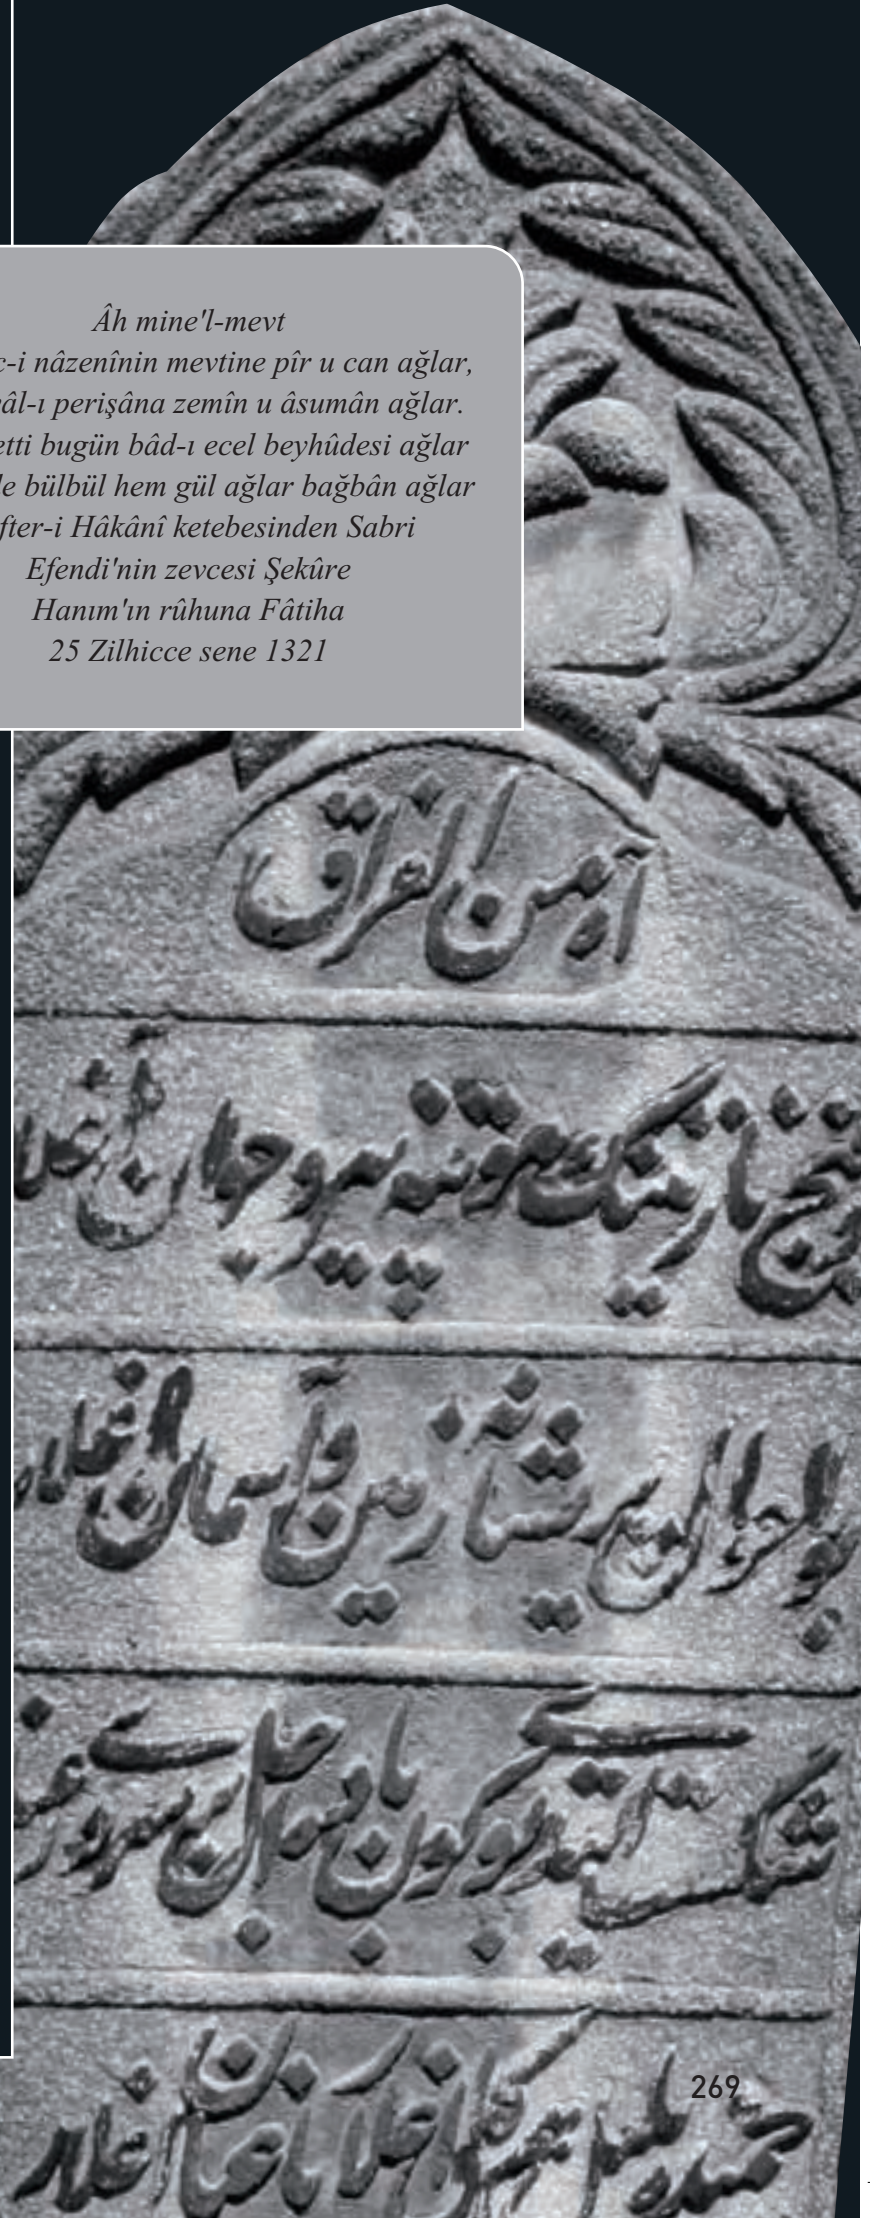 Âh mine'l-mevt
c-i nâzenînin mevtine pîr u can ağlar,
âl-ı perişâna zemîn u âsumân ağlar.
etti bugün bâd-ı ecel beyhûdesi ağlar
le bülbül hem gül ağlar bağbân ağlar
fter-i Hâkânî ketebesinden Sabri
Efendi'nin zevcesi Şekûre
Hanım'ın rûhuna Fâtiha
25 Zilhicce sene 1321
آه من الفراق
غنج نازنینك موتنه پیر و جوان اغلار
بو احوال پریشانه زمین و آسمان اغلار
شکست ایتدی بوکون باد اجل
بلبل هم کل اغلار باغبان اغلار
269